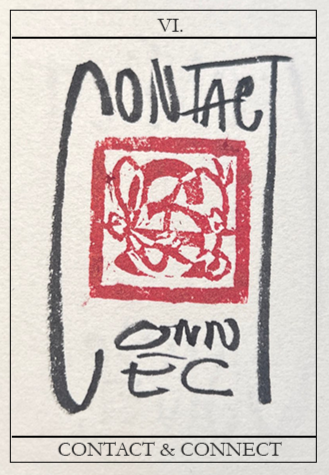 VI.
CONTACT
ONN
EC
CONTACT & CONNECT